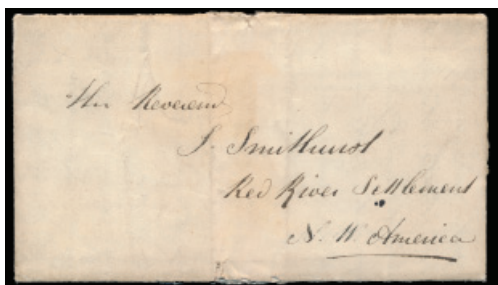 The Reverend
J. Smithurst
Red River Settlement
N. W. America